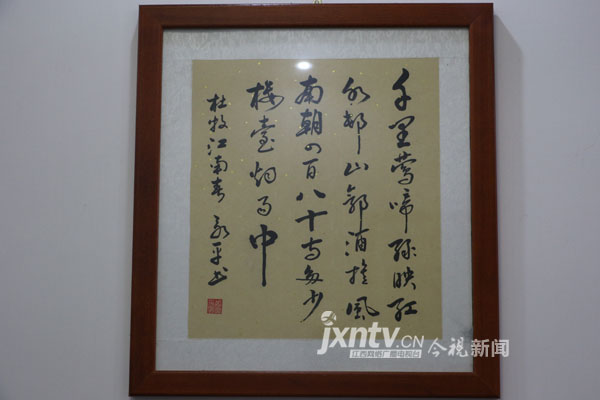 千里莺啼绿映红
水邨山郭酒旗風
南朝四百八十寺多少
楼臺烟雨中
杜牧江南春 平书
jxntv.CN 今视新闻
江西网络广播电视台